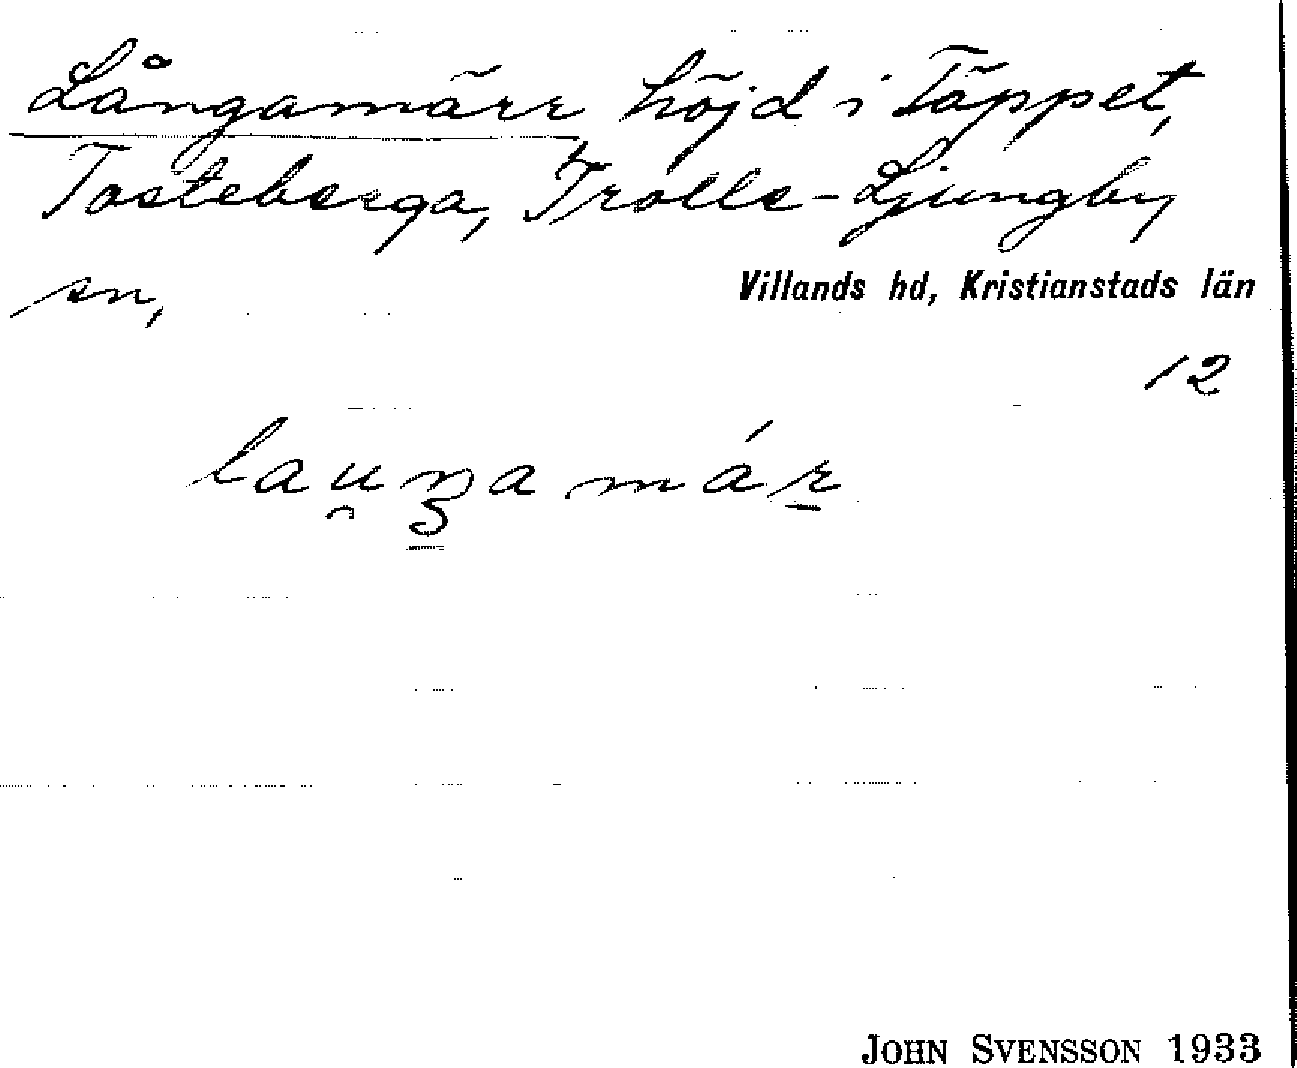 Långamärr, höjd i Täppet,
Tosteberga, Trolle-Ljungby
sn,
Villands hd, Kristianstads län
12
JOHN SVENSSON 1933